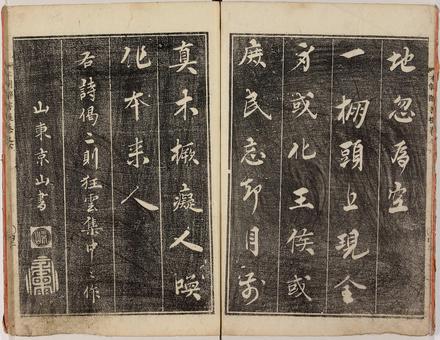 地忽為空
一棚頭上現全
身或化王侯或
庶民忘却目前
真木橛癡人喚
作本来人
右詩偈二則狂雲集中之作
山東京山書